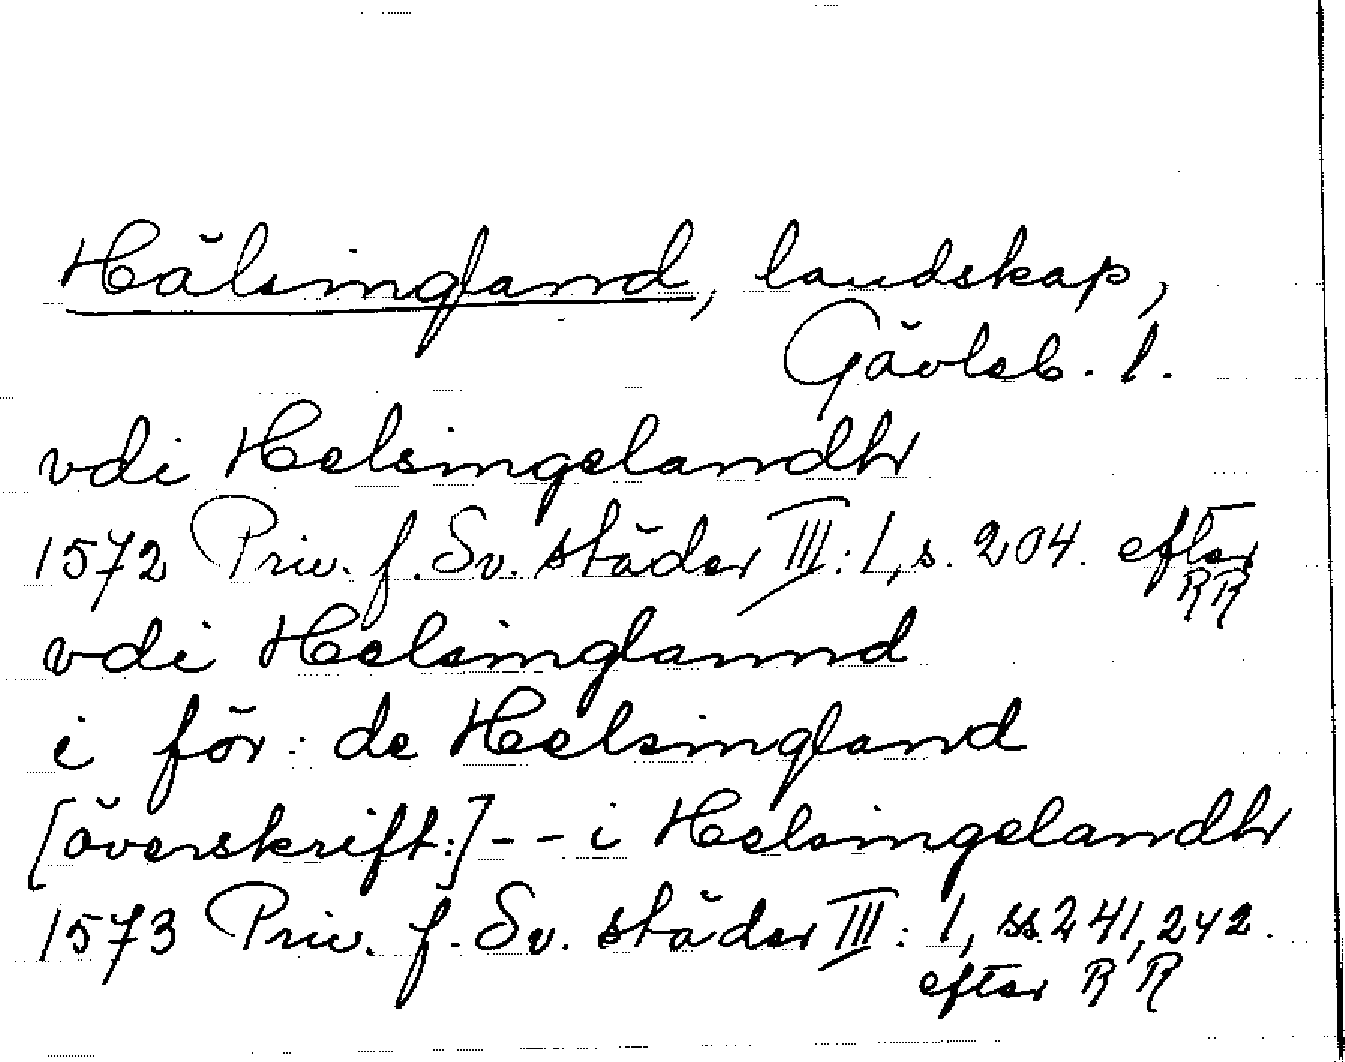 Hälsingland, landskap,
Gävleb. l.
vdi Helsingelandh
1572 Priv. f. Sv. städer III: 1, s. 204. efter
RR
vdi Helsinglannd
i för: de Helsingland
[överskrift:] - - i Helsingelandh
1573 Priv. f. Sv. städer III: 1, ss. 241, 242.
efter RR